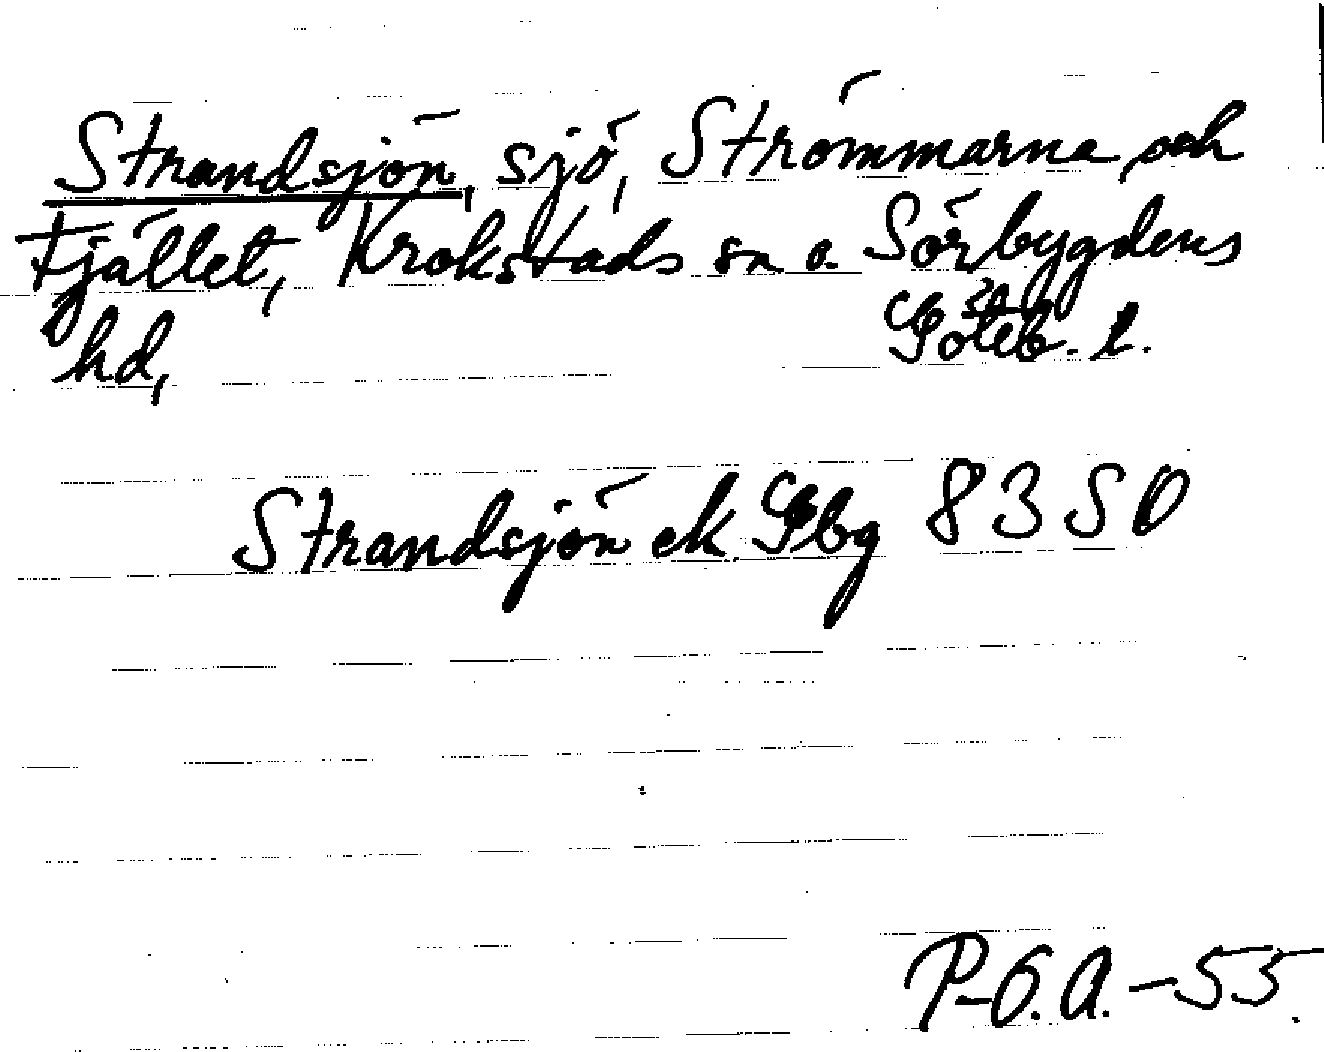 Strandsjön, sjö, Strömmarna och
Fjället, Krokstads sn o. Sörbygdens
hd, Göteb. l.
Strandsjön ek Gbg 83 SO
P-O.A.-55.